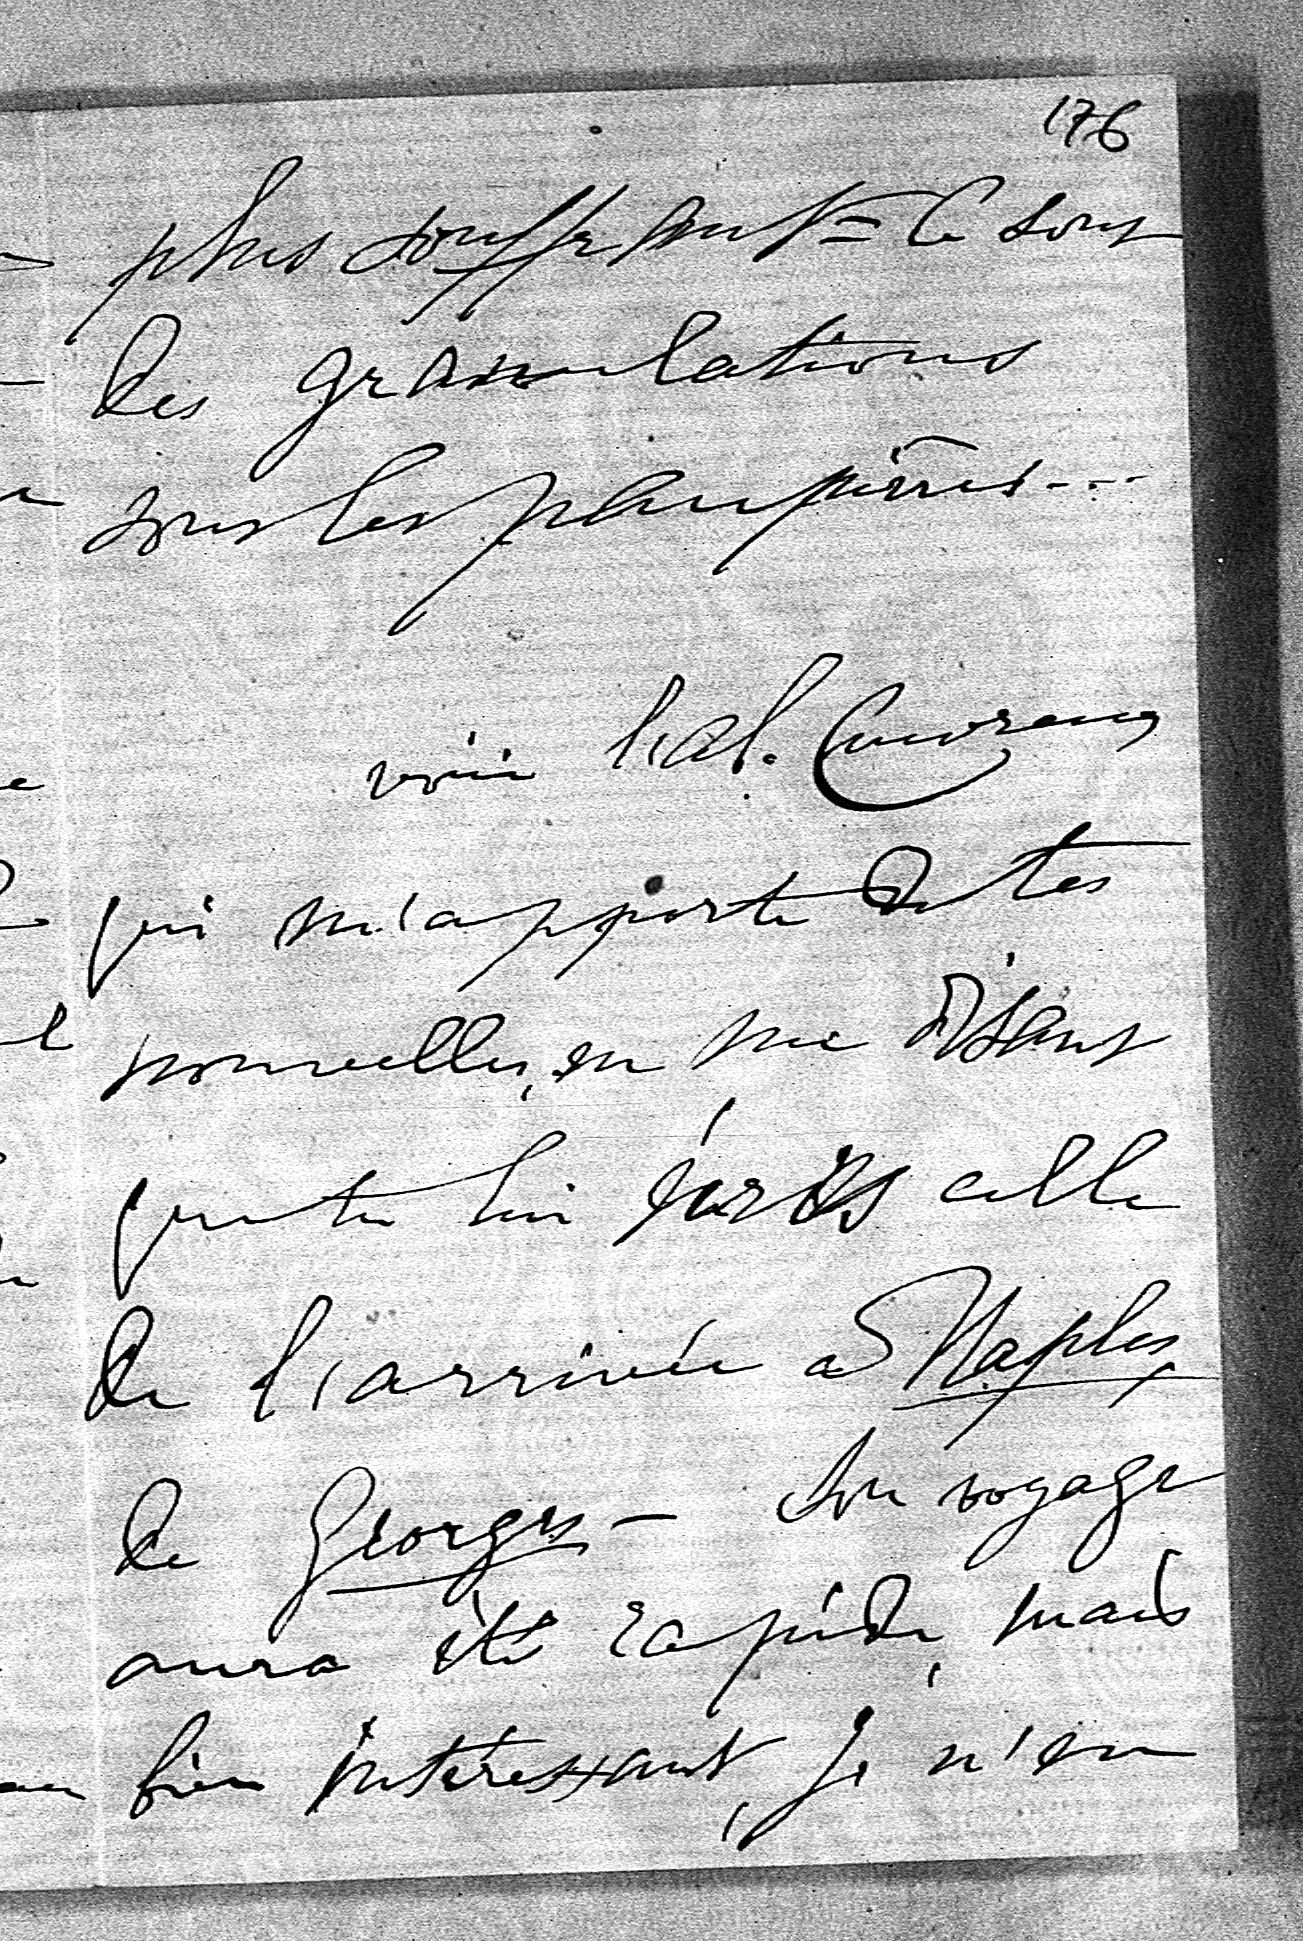 176
plus souffrant = Ce sont
des granulations
sous les paupières...
voici l'abf.
qui m'apporte de tes
nouvelles, en me disant
que tu lui écris celle
de l'arrivée à Naples
de Georges — Son voyage
aura été rapide, mais
bien intéressant, je n'en